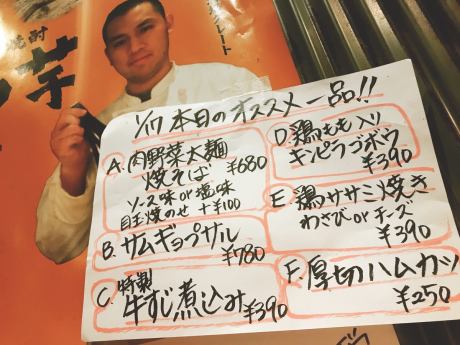 焼酎
芋
1/17 本日のオススメ一品!!
A. 肉野菜太麺
焼そば ¥680
ソース味or塩味
目玉焼のせ +¥100
B. サムギョプサル
¥780
C. 特製
牛すじ煮込み ¥390
D. 鶏もも入り
キンピラゴボウ
¥390
E. 鶏ササミ焼き
わさびorチーズ
¥390
F. 厚切ハムカツ
¥250